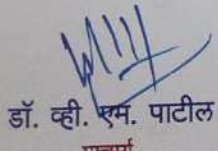 डॉ. व्ही. एम. पाटील